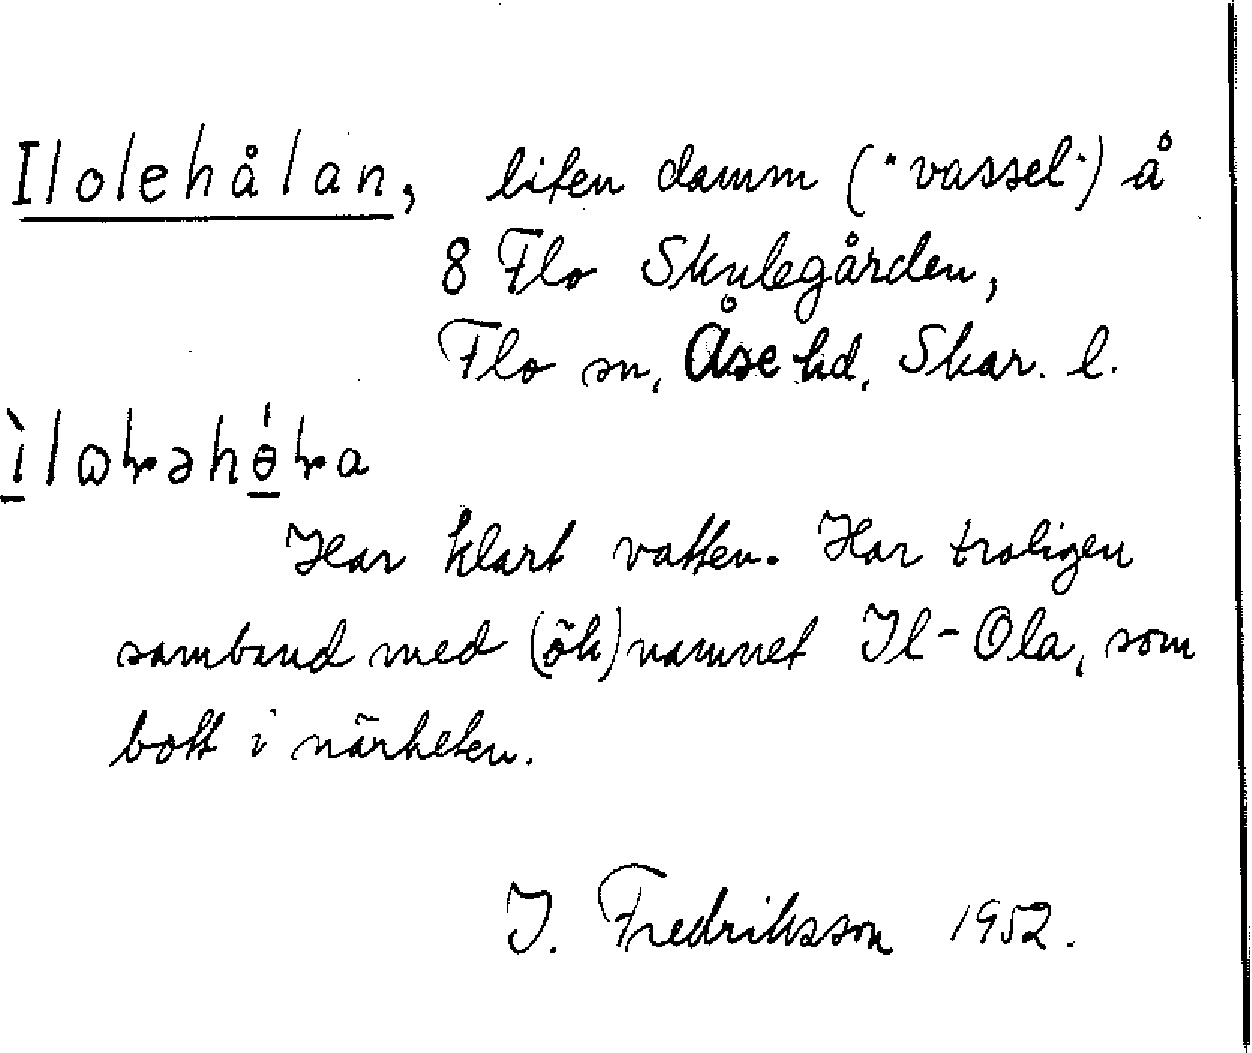 Ilolehålan, liten damm ("vassel") å
8 Flo Skulegården,
Flo sn, Åse hd, Skar. l.
Har klart vatten. Har troligen
samband med (ök)namnet Il-Ola, som
bott i närheten.
I. Fredriksson 1952.